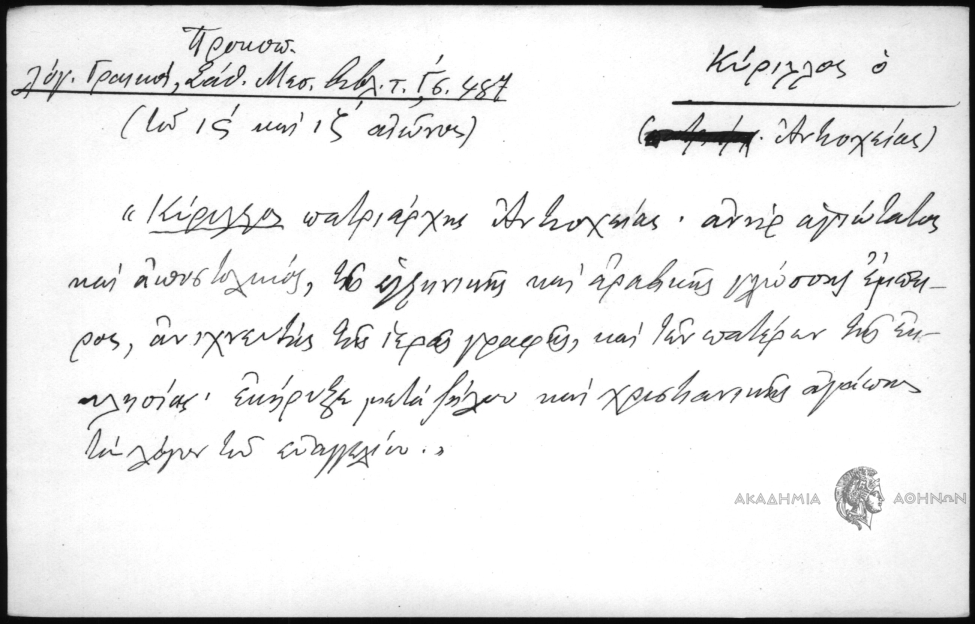 Προκοπ.
λόγ. Γραικοί, Σάθ. Μεσ. Βιβλ. τ. Γ΄ σ. 487
(τοῦ ις΄ καὶ ιζ΄ αἰῶνος)
Κύριλλος ὁ
(Ἀντιοχείας)
"Κύριλλος πατριάρχης Ἀντιοχείας· ἀνὴρ ἁγιώτατος
καὶ ἀποστολικός, τῆς ἑλληνικῆς καὶ ἀραβικῆς γλώσσης ἔμπει-
ρος, ἀνιχνευτὴς τῆς ἱερᾶς γραφῆς, καὶ τῶν πατέρων τῆς ἐκ-
κλησίας· ἐκήρυξε μετὰ ζήλου καὶ χριστιανικῆς ἀγάπης
τὸν λόγον τοῦ εὐαγγελίου."
ΑΚΑΔΗΜΙΑ ΑΘΗΝΩΝ